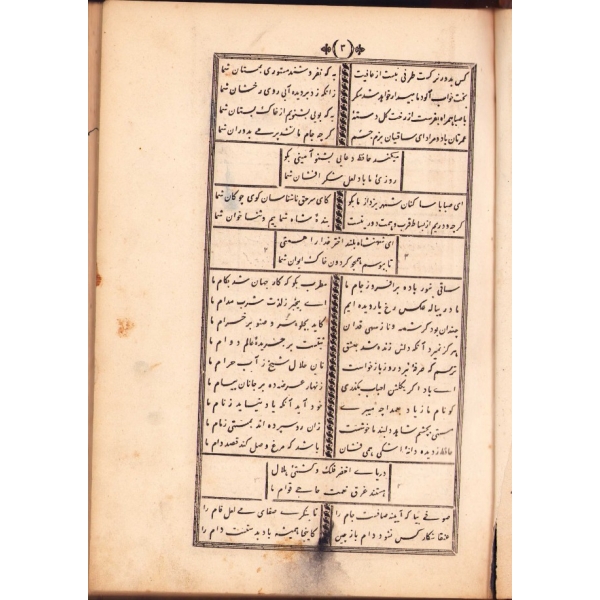 ۳
کس بدور نرگست طرفی نبست از عافیت به که نفروشند مستوری بمستان شما
بخت خواب آلود ما بیدار خواهد شد مگر زانکه زد بر دیده آبی روی رخشان شما
با صبا همراه بفرست از رخت گل دستهٔ بو که بویی بشنویم از خاک بستان شما
عمرتان باد و مراد ای ساقیان بزم جم گر چه جام ما نشد پر می بدوران شما
میکند حافظ دعایی بشنو آمینی بگو
روزی ما باد لعل شکر افشان شما
ای صبا با ساکنان شهر یزد از ما بگو کای سر حق ناشناسان گوی چوگان شما
گر چه دوریم از بساط قرب همت دور نیست بندهٔ شاه شماییم و ثنا خوان شما
ای شهنشاه بلند اختر خدا را همتی
تا ببوسم همچو گردون خاک ایوان شما
ساقی بنور باده برافروز جام ما مطرب بگو که کار جهان شد بکام ما
ما در پیاله عکس رخ یار دیده ایم اے بیخبر ز لذت شرب مدام ما
چندان بود کرشمه و ناز سهی قدان کاید بجلوه سرو صنوبر خرام ما
هرگز نمیرد آنکه دلش زنده شد بعشق ثبت است بر جریدهٔ عالم دوام ما
ترسم که صرفهٔ نبرد روز بازخواست نان حلال شیخ ز آب حرام ما
اے باد اگر بگلشن احباب بگذری زنهار عرضه ده بر جانان پیام ما
گو نام ما ز یاد بعمدا چه میبرے خود آید آنکه یاد نیاید ز نام ما
مستی بچشم شاهد دلبند ما خوشست زان رو سپرده اند بمستی زمام ما
حافظ ز دیده دانهٔ اشکی همی فشان باشد که مرغ وصل کند قصد دام ما
دریاے اخضر فلک و کشتی هلال
هستند غرق نعمت حاجی قوام ما
صوفے بیا که آینه صافست جام را تا بنگرے صفای مے لعل فام را
عنقا شکار کس نشود دام باز چین کاینجا همیشه باد بدستست دام را